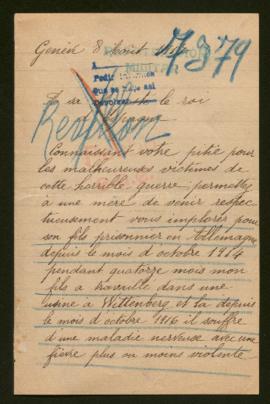 Genève 8 Aout
7879
A
Pedir
que se
le roi
Connaissant votre pitié pour
les malheureuses victimes de
cette horrible guerre, permettez
à une mère de venir respec
tueusement vous implorer pour
son fils prisonnier en Allemagne
depuis le mois d'octobre 1914
pendant quatorze mois mon
fils a travaillé dans une
usine a Wittenberg et la depuis
le mois d'octobre 1916 il souffre
d'une maladie nerveuse avec une
fièvre plus ou moins violente